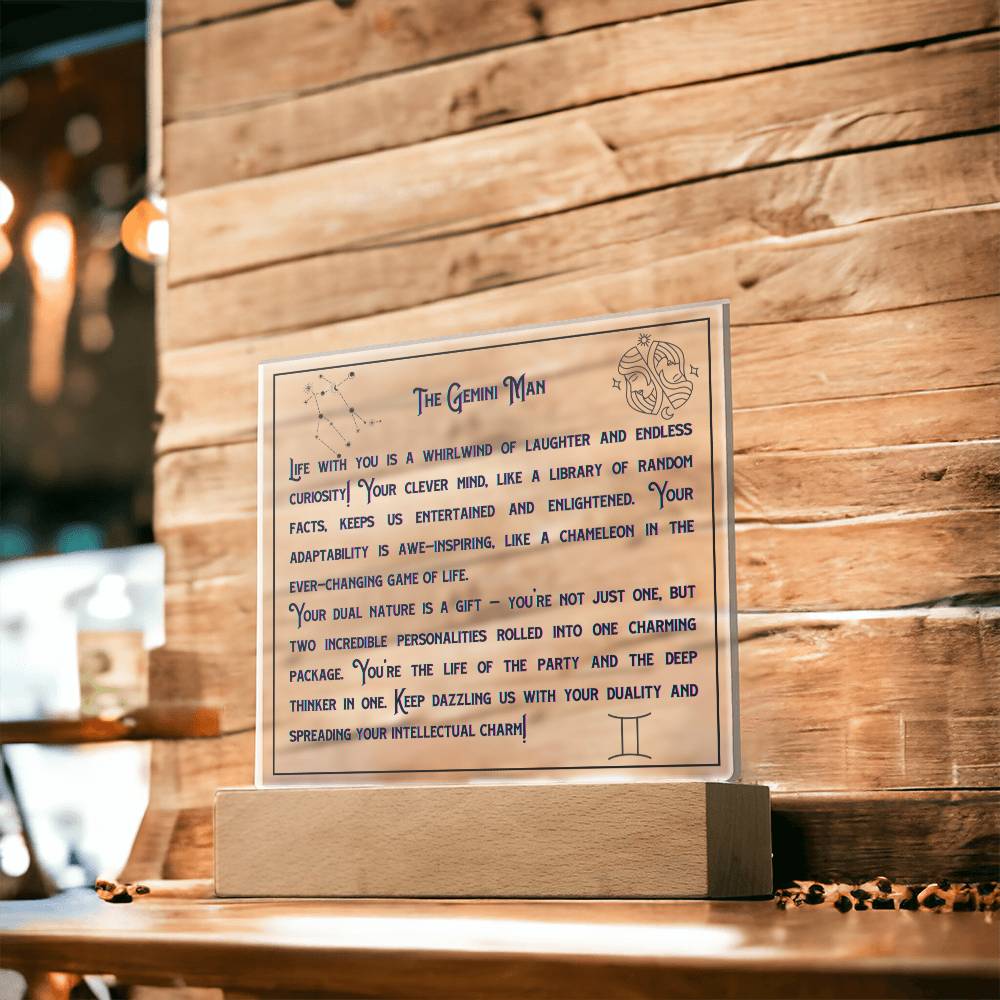 The Gemini Man
Life with you is a whirlwind of laughter and endless
curiosity! Your clever mind, like a library of random
facts, keeps us entertained and enlightened. Your
adaptability is awe-inspiring, like a chameleon in the
ever-changing game of life.
Your dual nature is a gift – you're not just one, but
two incredible personalities rolled into one charming
package. You're the life of the party and the deep
thinker in one. Keep dazzling us with your duality and
spreading your intellectual charm!